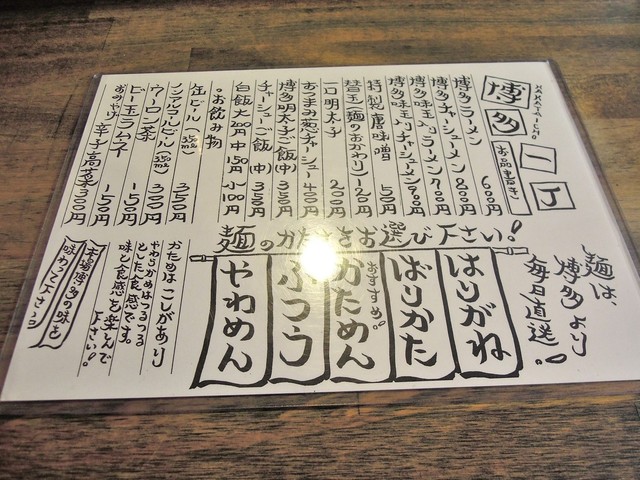 HAKATA ICCHO
博多一丁
お品書き
博多ラーメン 600円
博多チャーシューメン 800円
博多味玉入りラーメン 700円
博多味玉入りチャーシューメン 900円
特製唐味噌 50円
替玉(麺のおかわり) 120円
一口明太子 200円
おつまみ葱チャーシュー 400円
博多明太子ご飯(中) 350円
チャーシューご飯(中) 350円
白飯 大200円 中150円 小100円
。お飲み物
缶ビール(350ml) 350円
ノンアルコールビール(350ml) 300円
ウーロン茶 150円
ビー玉ラムネ 150円
おみやげ 辛子高菜 300円
麺は、
博多より
毎日直送!
麺のかたさをお選び下さい!
はりがね
ばりかた
おすすめ!
かためん
ふつう
やわめん
かためはこしがあり
やわらかめはつるつる
とした食感です。
味と食感を楽しんで
下さい!
本場博多の味を
味わって下さい